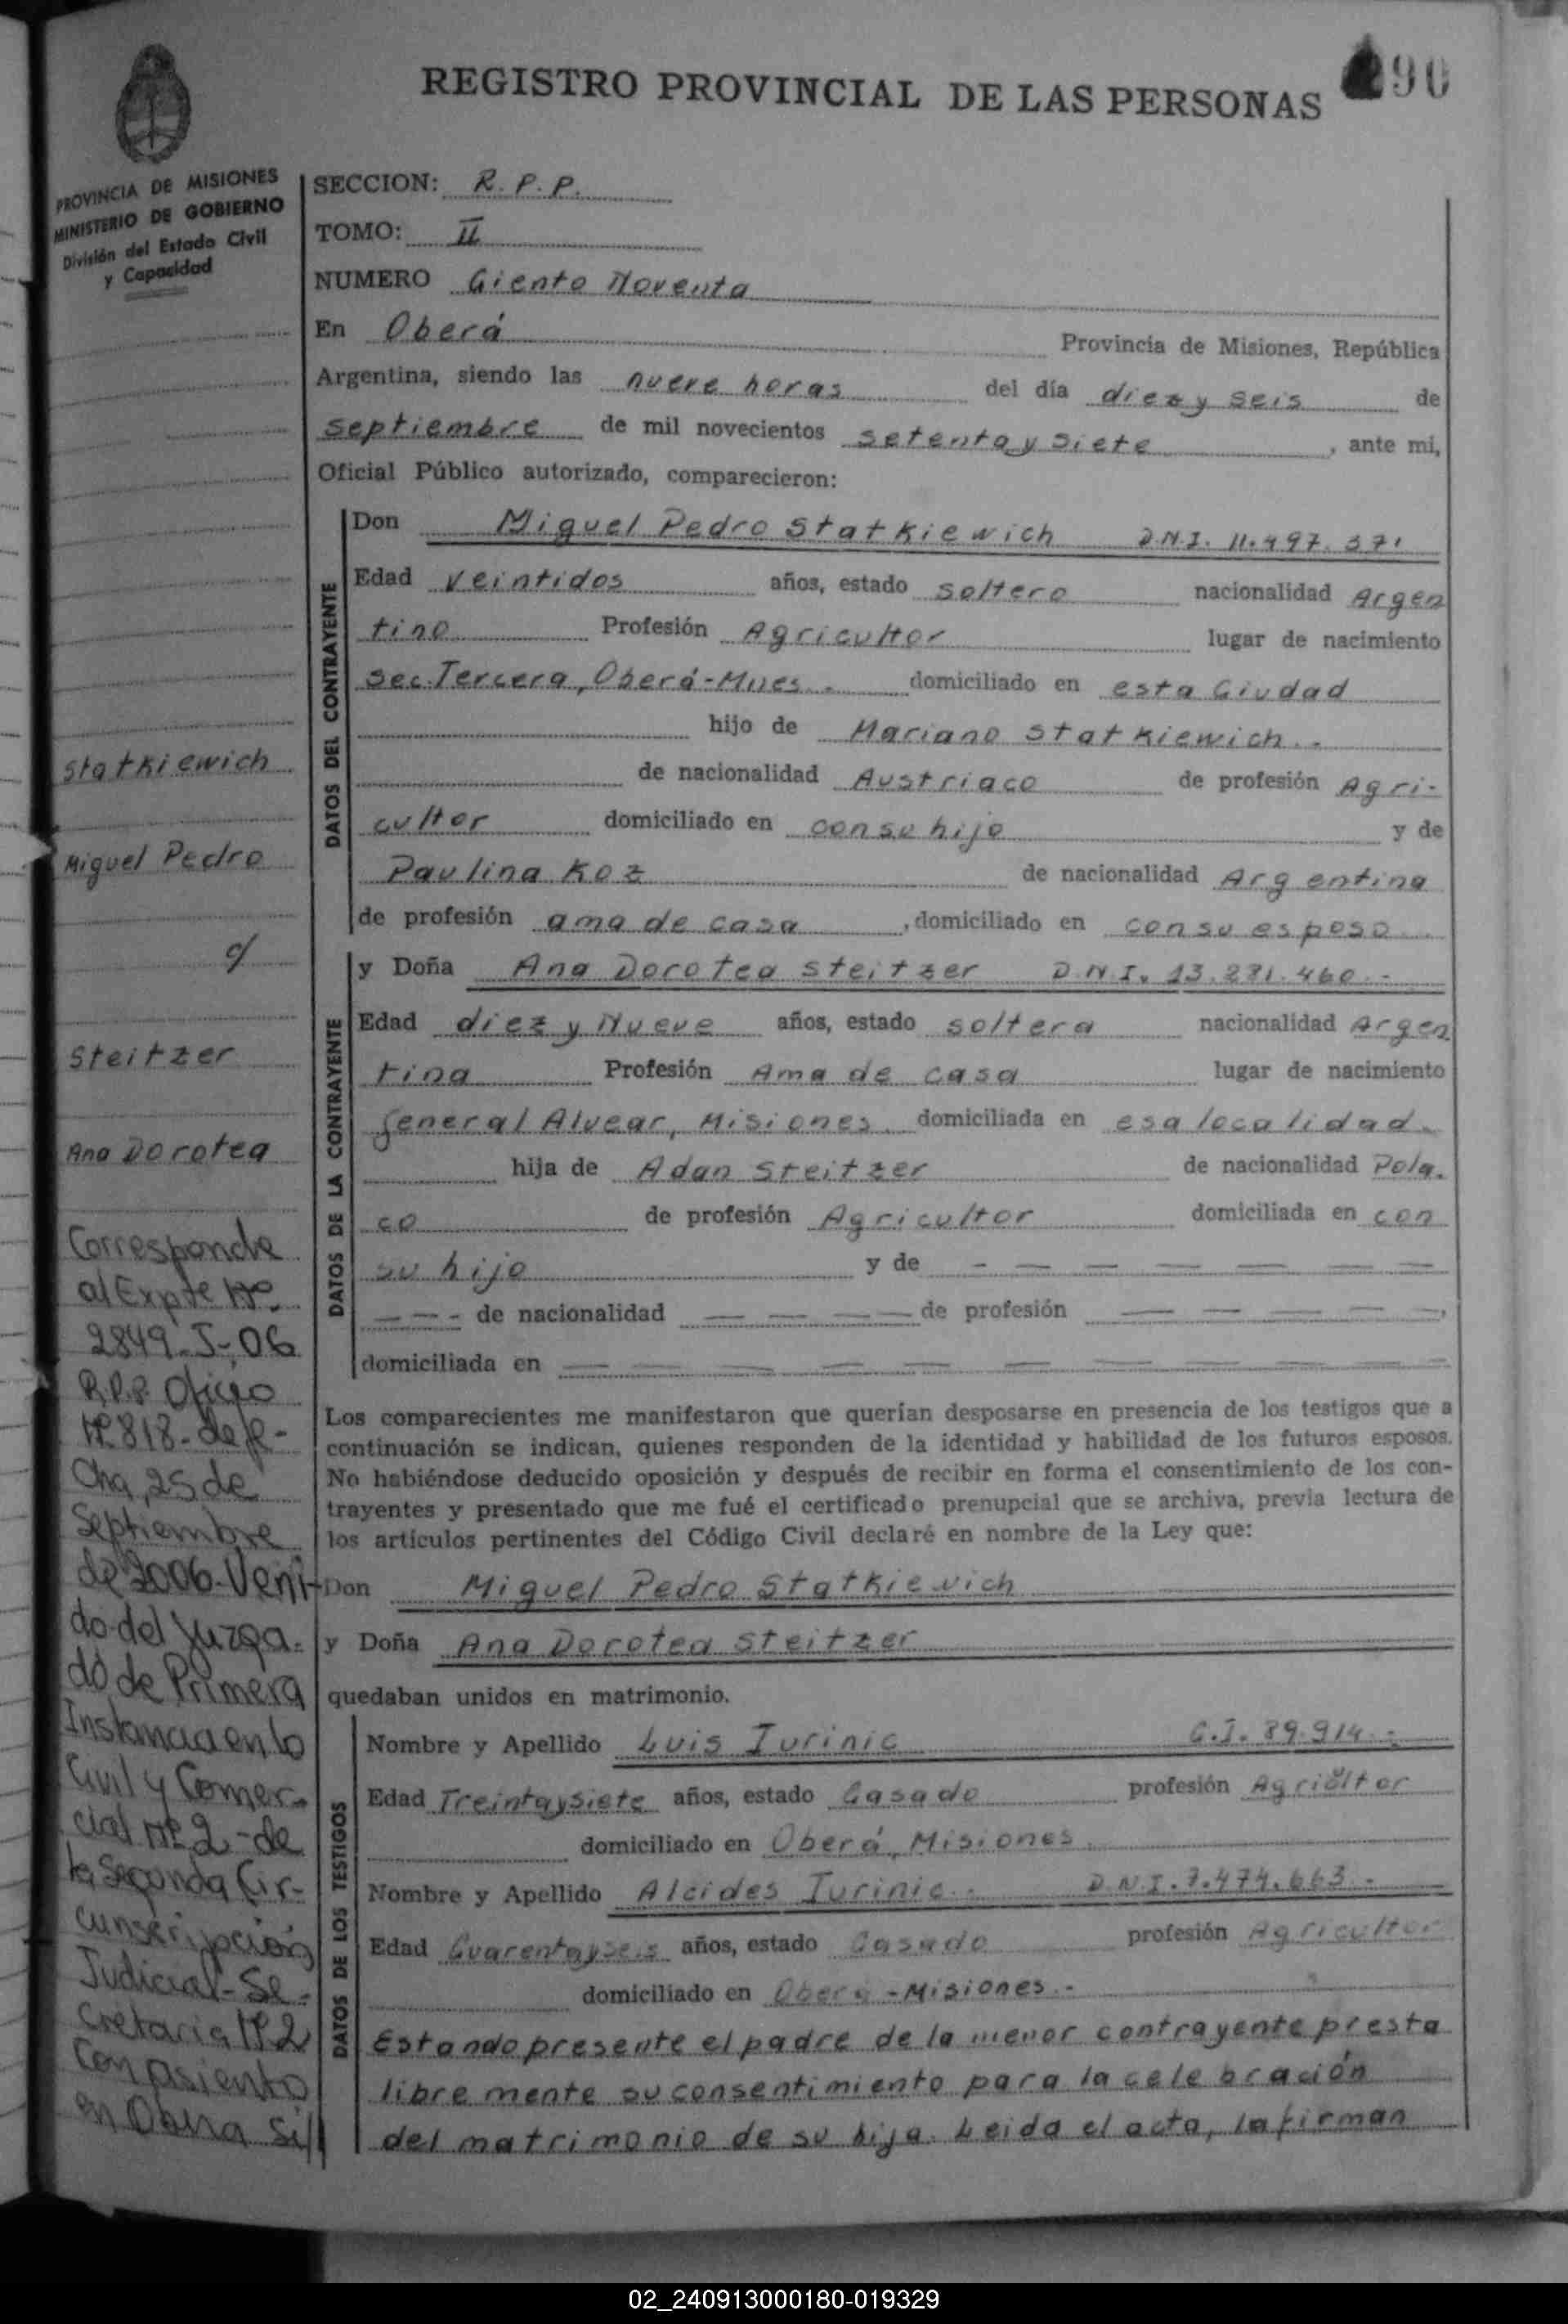 90
REGISTRO PROVINCIAL DE LAS PERSONAS
PROVINCIA DE MISIONES
MINISTERIO DE GOBIERNO
División del Estado Civil
y Capacidad
SECCION: R. P. P.
TOMO: II
NUMERO Ciento Noventa
En Oberá Provincia de Misiones, República
Argentina, siendo las nueve horas del día diez y seis de
septiembre de mil novecientos setenta y siete, ante mi,
Oficial Público autorizado, comparecieron:
DATOS DEL CONTRAYENTE
Don Miguel Pedro Statkiewich D.N.I. 11.497.371
Edad veintidos años, estado soltero nacionalidad Argen
tino Profesión Agricultor lugar de nacimiento
Sec. Tercera, Oberá-Mnes. domiciliado en esta Ciudad
hijo de Mariano Statkiewich.-
de nacionalidad Austriaco de profesión Agri-
cultor domiciliado en con su hijo y de
Paulina Koz de nacionalidad Argentina
de profesión ama de casa, domiciliado en con su esposo
DATOS DE LA CONTRAYENTE
y Doña Ana Dorotea Steitzer D.N.I. 13.281.460.-
Edad diez y Nueve años, estado soltera nacionalidad Argen
tina Profesión Ama de casa lugar de nacimiento
General Alvear, Misiones. domiciliada en esa localidad.
hija de Adan Steitzer de nacionalidad Pola.
co de profesión Agricultor domiciliada en con
su hijo y de - — — — — — —
— - - de nacionalidad — — — — de profesión — — — — —,
domiciliada en — — — — — — — — — -
Los comparecientes me manifestaron que querían desposarse en presencia de los testigos que a
continuación se indican, quienes responden de la identidad y habilidad de los futuros esposos.
No habiéndose deducido oposición y después de recibir en forma el consentimiento de los con-
trayentes y presentado que me fué el certificado prenupcial que se archiva, previa lectura de
los artículos pertinentes del Código Civil declaré en nombre de la Ley que:
Don Miguel Pedro Statkiewich
y Doña Ana Dorotea Steitzer
quedaban unidos en matrimonio.
DATOS DE LOS TESTIGOS
Nombre y Apellido Luis Iurinic C.I. 89.914.-
Edad Treinta y siete años, estado Casado profesión Agricultor
domiciliado en Oberá, Misiones
Nombre y Apellido Alcides Iurinic.- D.N.I. 7.474.663.-
Edad Cuarenta y seis años, estado Casado profesión Agricultor
domiciliado en Oberá - Misiones.-
Estando presente el padre de la menor contrayente presta
libremente su consentimiento para la celebración
del matrimonio de su hija. Leida el acta, la firman
Statkiewich
Miguel Pedro
c/
Steitzer
Ana Dorotea
Corresponde
al Expte Nº.
2849-J-06
R.P.P. Oficio
Nº 818- de fe-
cha, 25 de
Septiembre
de 2006- Veni-
do del Juzga-
do de Primera
Instancia en lo
Civil y Comer-
cial Nº 2 - de
la Segunda Cir-
cunscripción
Judicial - Se-
cretaria Nº 2
Con asiento
en Oberá Si//
02_240913000180-019329